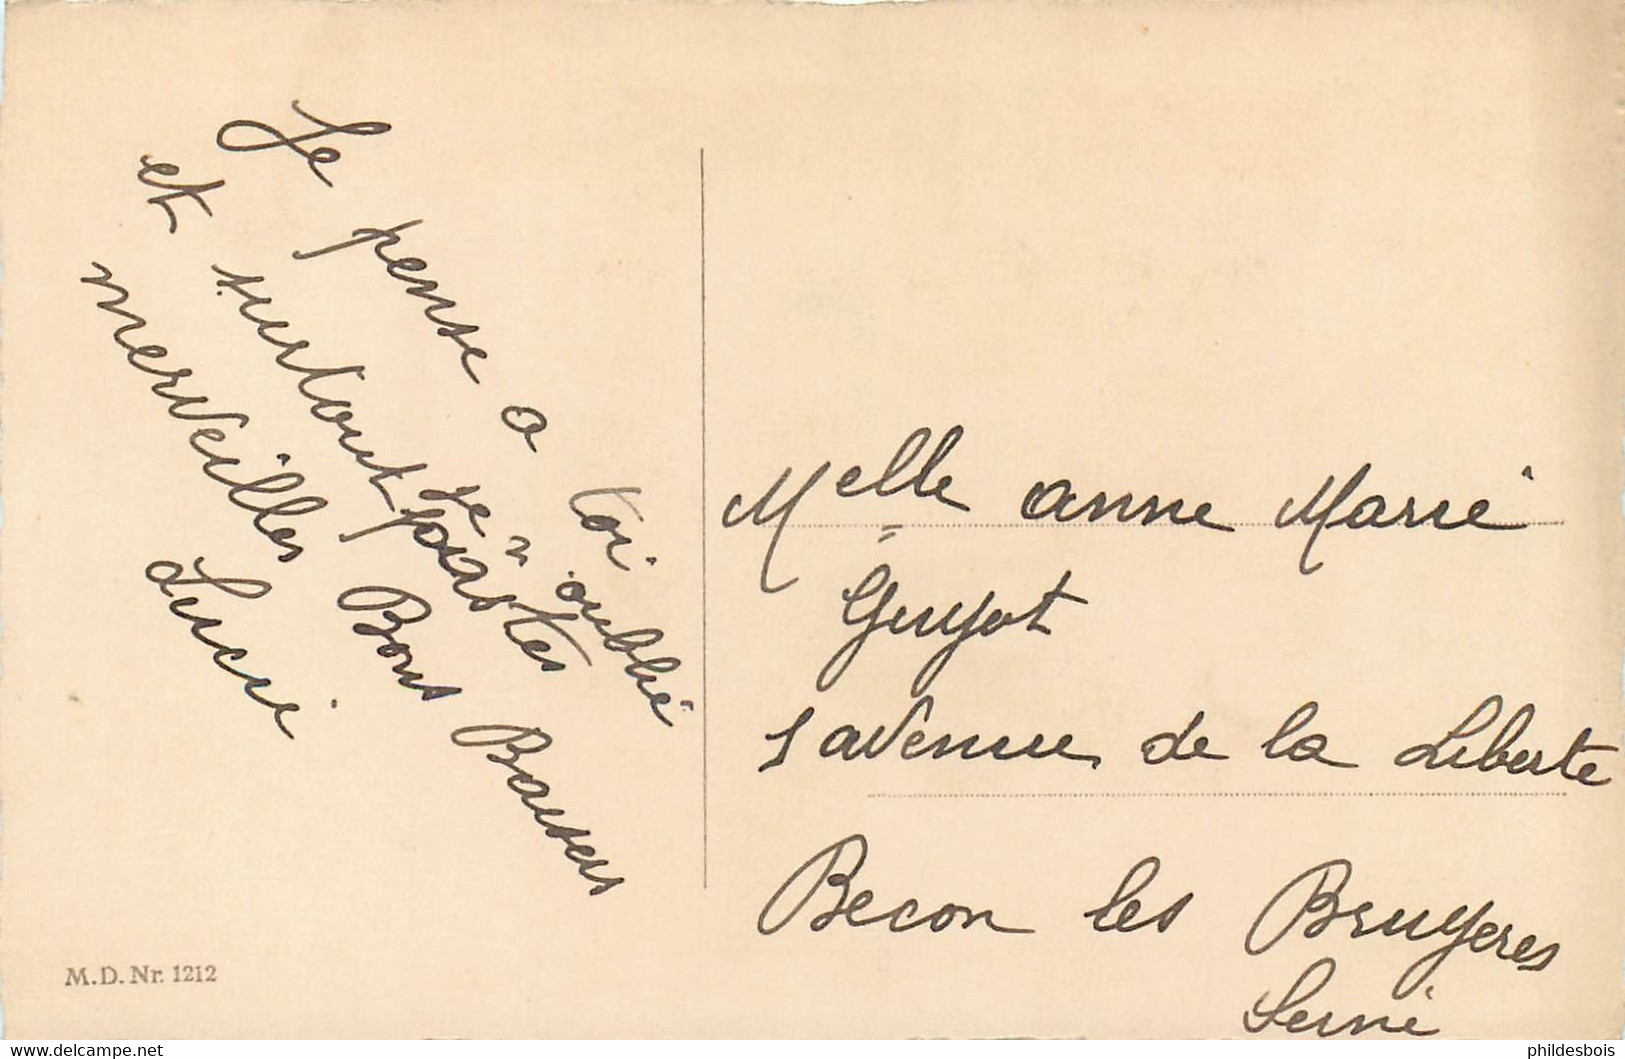 Je pense a toi
et surtout je n'oublié
pas tes
merveilles Bons Baisers
Lucie
Melle anne Marie
Guyot
1 avenue de la Liberte
Becon les Bruyeres
Seine
M.D. Nr. 1212
delcampe.net
phildesbois